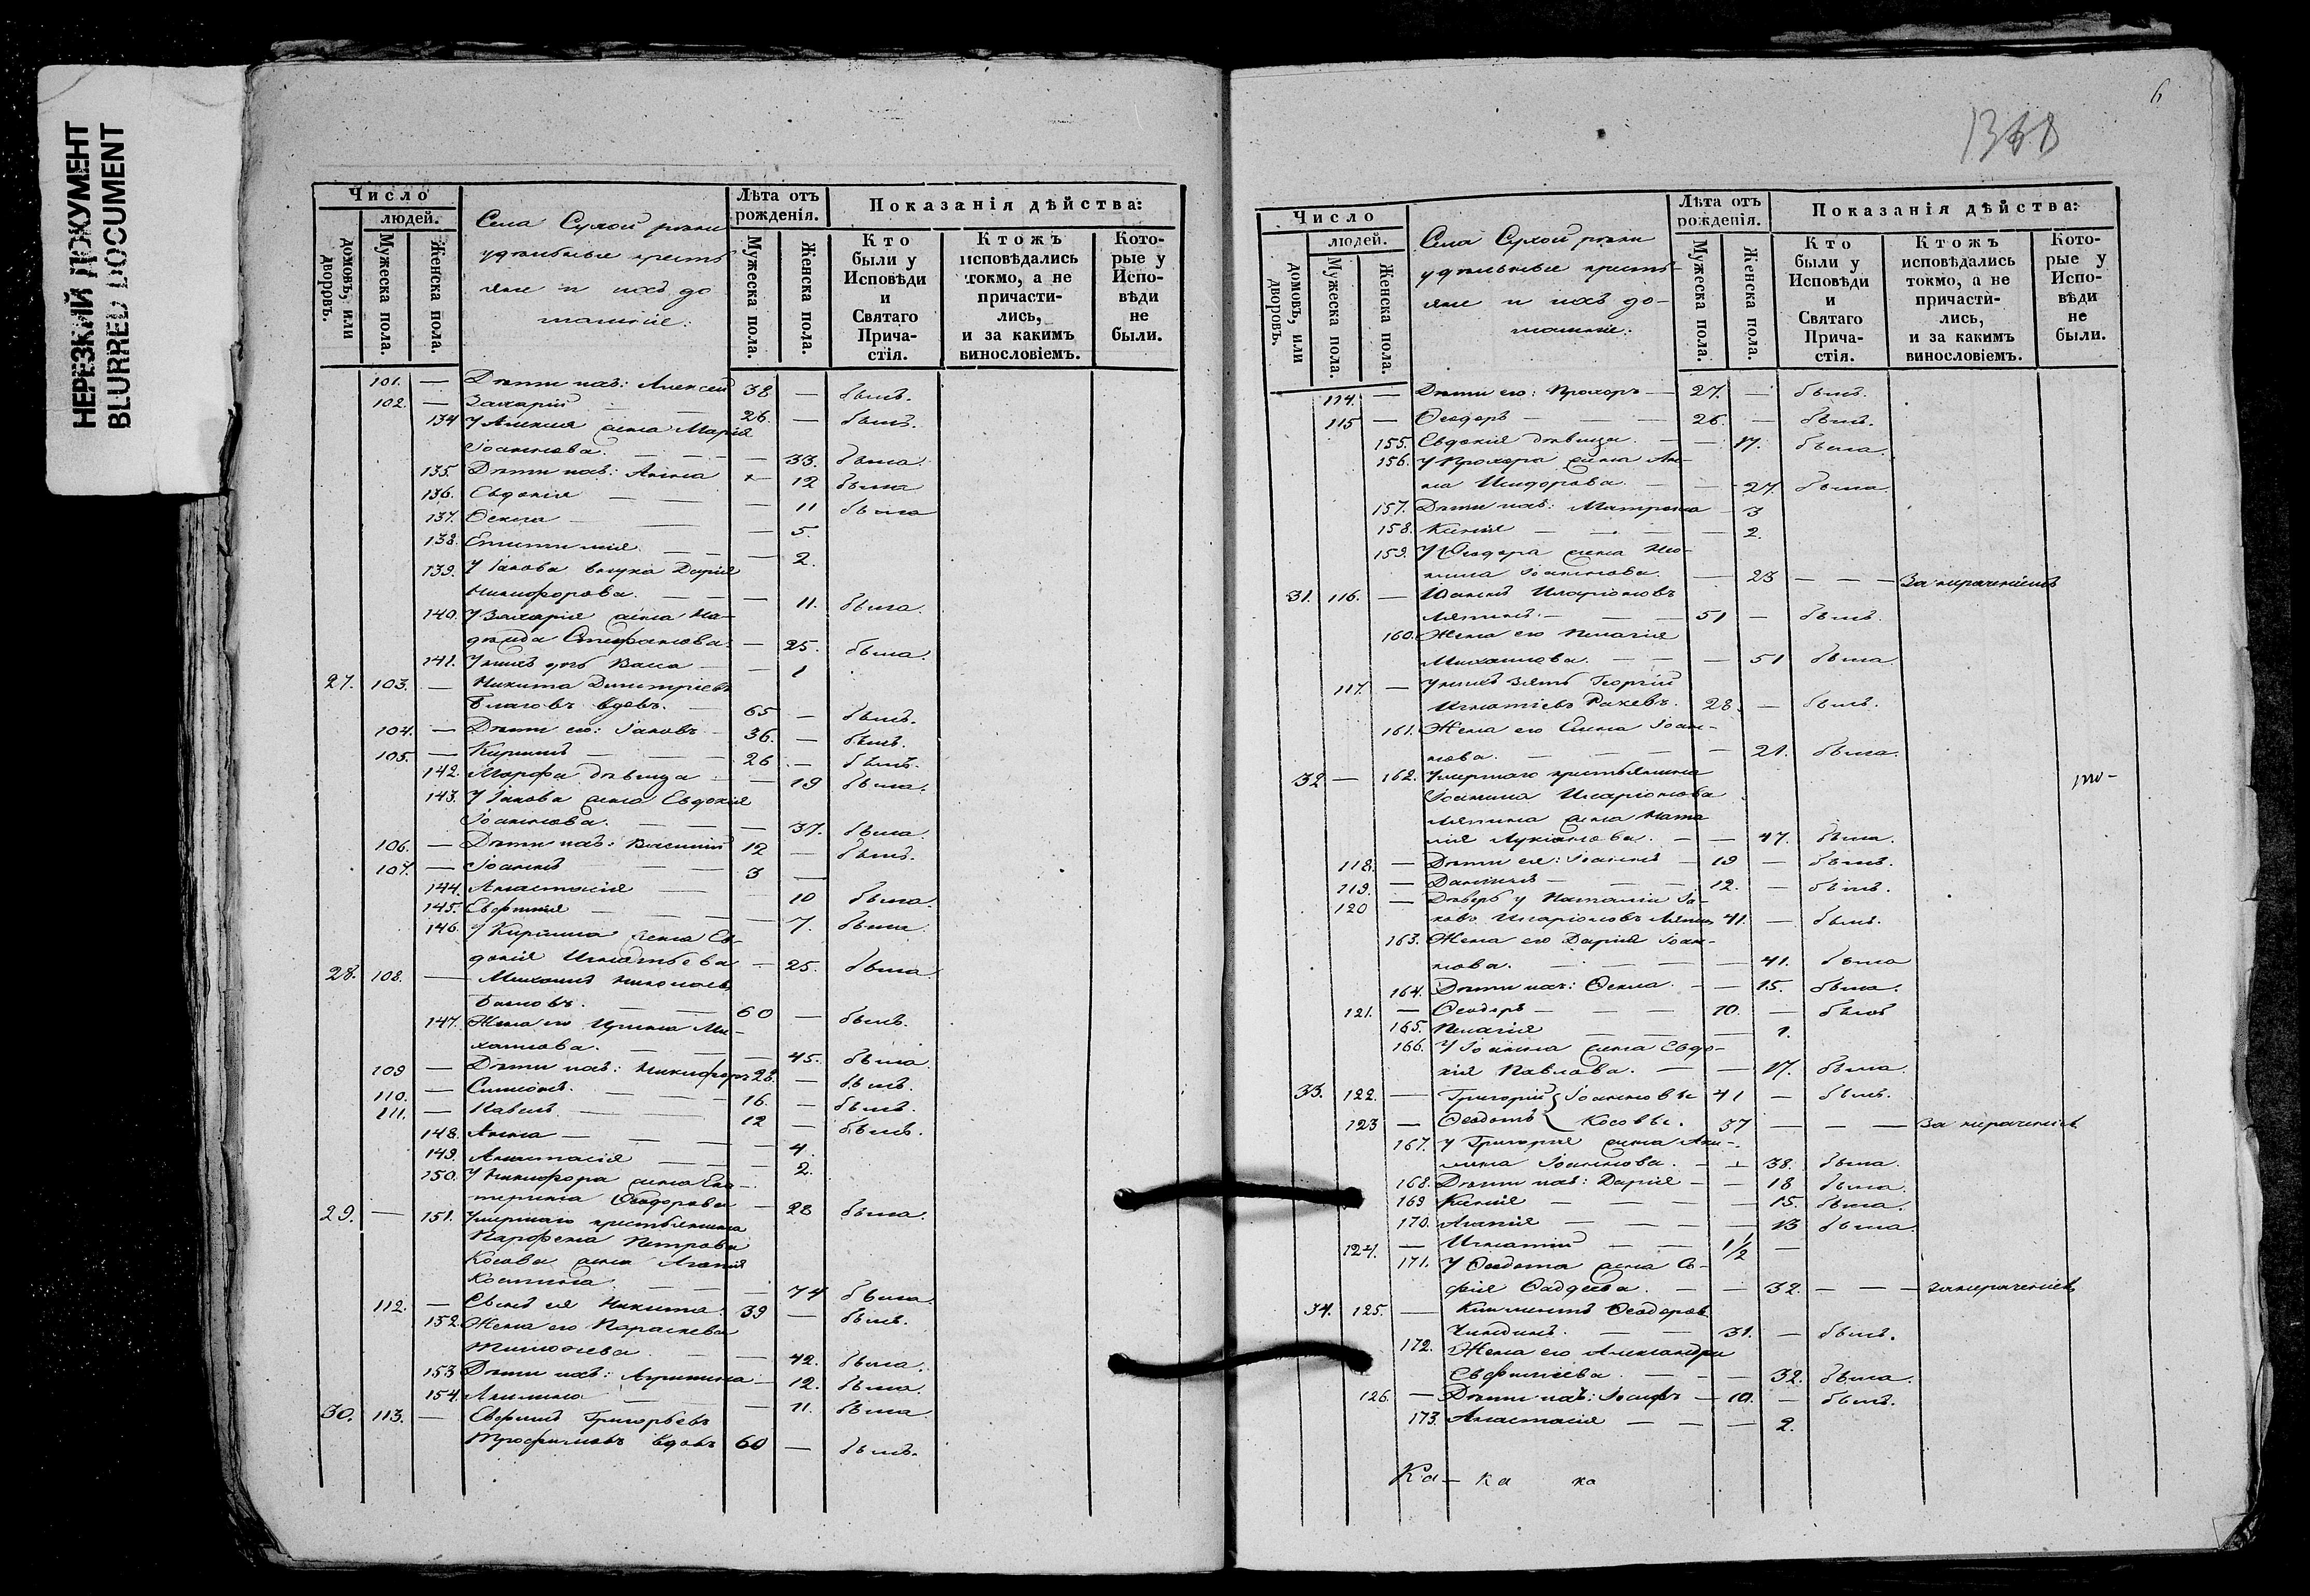 НЕРЕЗКИЙ ДОКУМЕНТ
BLURRED DOCUMENT
Число
людей.
домовъ, или дворовъ.
Мужеска пола.
Женска пола.
Села Сухой
удельные кресть
яне и ихъ до
машние:
Лѣта отъ рожденія.
Мужеска пола.
Женска пола.
Показанія дѣйства:
Кто были у Исповѣди и Святаго Прича- стія.
Ктожъ исповѣдались токмо, а не причасти- лись, и за какимъ винословіемъ.
Кото- рые у Испо- вѣди не были.
101. — Дѣти ихъ: Алексей 38 — былъ.
102. — Захарій — — 26. — былъ.
134 У Алексея жена Марія
Іоаннова. — — — 33. была.
135. Дѣти ихъ: Анна — 12 была
136. Евдокія — — — 11 была
137. Ѳекла — — — 5.
138. Епистимия — — — 2.
139. У Іакова внука Дарія
Никифорова. — — — 11. была.
140. У Захарія жена На-
дежда Стефанова — 25. была.
141. У нихъ дочь Васса — — 1
27. 103. — Никита Димитріевъ
вдовъ. — 65 — былъ.
104. — Дѣти его: Іаковъ — 36. — былъ.
105. — Кириллъ — — 26 — былъ.
142. Марфа дѣвица — — 19 была.
143. У Іакова жена Евдокія
Іоаннова. — — — 37. была.
106. — Дѣти ихъ: Василий 12 — былъ.
107. — Іоаннъ — 3 —
144. Анастасія — — 10 была.
145. Евфимия — — — 7. была.
146. У Кирилла жена Ев-
докія Игнатьева — 25. была.
28. 108. — Михаилъ Николаевъ
— — 60 — былъ.
147. Жена его Ирина Ми-
хаилова. — — — 45. была.
109 — Дѣти ихъ: Никифоръ 28. — былъ.
110. — Симеонъ. — — 16. — былъ.
111. — Павелъ — — 12 — былъ.
148. Анна — — — 4.
149. Анастасія — — — 2.
150. У Никифора жена Ека-
терина Ѳеодорова — 28 была.
29. — 151. Умершаго крестьянина
Парфена Петрова
Косова жена Агафія
— — 74 была.
112. — Сынъ ея Никита 39 — былъ.
152. Жена его Параскева
Тимофеева — — 42. была.
153 Дѣти ихъ: Агрипина — 12. была.
154. Акилина — — 11. была
30. 113. — Евфимъ Григорьевъ
Трофимовъ вдовъ 60 — былъ.
6
Число
людей.
домовъ, или дворовъ.
Мужеска пола.
Женска пола.
Села Сухой
удельные кресть-
яне и ихъ до-
машние:
Лѣта отъ рожденія.
Мужеска пола.
Женска пола.
Показанія дѣйства:
Кто были у Исповѣди и Святаго Прича- стія.
Ктожъ исповѣдались токмо, а не причасти- лись, и за какимъ винословіемъ.
Кото- рые у Испо- вѣди не были.
114. — Дѣти его: Прохоръ — 27. — былъ.
115 — Ѳеодоръ — — 26. — былъ.
155. Евдокія дѣвица. — — 17. была
156. У Прохора жена Ан-
на Исидорова. — — 27. была.
157. Дѣти ихъ: Матрена — 3
158. Ксенія — — — 2.
159. У Ѳеодора жена
Іоаннова. — 23 — — — За нерачениемъ
31. 116. — Іоаннъ Иларіоновъ
— — 51 — былъ.
160. Жена его Пелагія
Михаилова. — — — 51 была
117. — У нихъ зять Георгій
Игнатіевъ 28. — былъ.
161. Жена его Іоан-
нова. — — — 21. была.
32 — 162. Умершаго крестьянина
Іоанна Иларіонова
жена Ната
лия Лукіанова. — — 47. была.
118. — Дѣти ея: Іоаннъ — 19 — былъ.
119. — Даніилъ — — 12. — былъ.
120 — Деверь у Наталіи Іа-
ковъ Иларіоновъ 41. — былъ.
163. Жена его Дарія Іоан-
нова. — — — 41. была
164. Дѣти ихъ: Ѳекла. — — 15. была.
121. — Ѳеодоръ — — — 10. — былъ
165. Пелагія — — — 1.
166. У Іоанна жена Евдо-
кія Павлова. — — 17. была.
33. 122. — Григорій Іоанновы 41 — былъ.
123 — Ѳеодотъ Косовы. 37 — — — За нерачениемъ
167. У Григорія жена Аки-
лина Іоаннова. — — 38. была.
168. Дѣти ихъ: Дарія — — 18 была.
169 Ксенія — — — 15. была.
170. Агафія — — — 13 была
124. — Игнатий — — 1/2 —
171. У Ѳеодота жена Со-
фія Ѳадеева. — — 32. — — — за нерачениемъ
34. 125. — Климентъ Ѳеодоровъ
— — 31. — былъ.
172. Жена его Александра
Евфимиева. — — — 32. была.
126. — Дѣти ихъ: Іосифъ — 10. — былъ.
173. Анастасія — — — 2.
Ка — ка ка